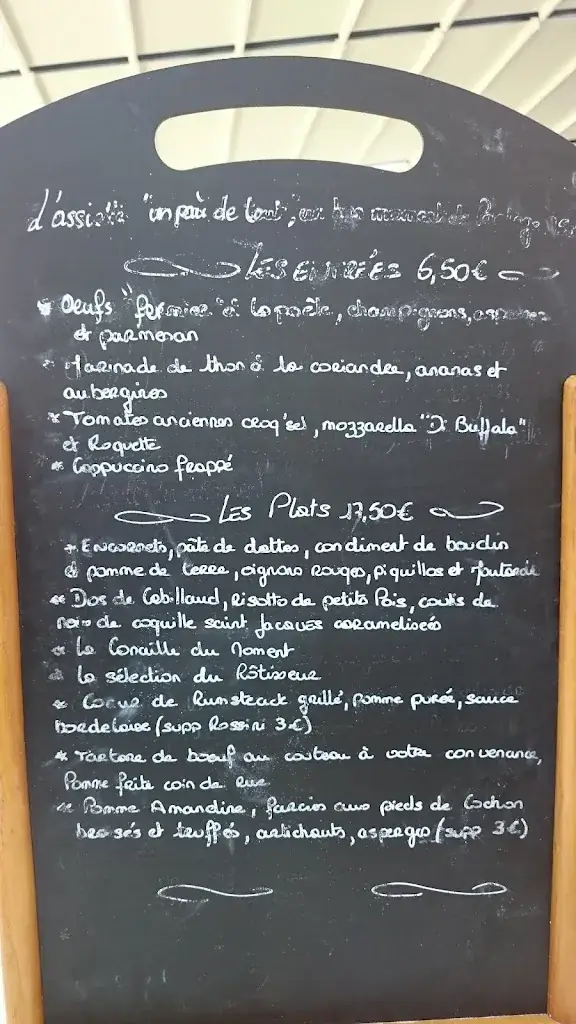 L'assiette "un peu de tout", un bon moment de Partage
LES ENTRÉES 6,50€
* Oeufs "fermier" à la poêle, champignons, asperges
et parmesan
* Marinade de thon à la coriandre, ananas et
aubergines
* Tomates anciennes croq'sel, mozzarella "Di Buffala"
et Roquette
* Cappuccino frappé
LES Plats 17,50€
* Encornets, pâte de dattes, condiment de boudin
& pomme de terre, oignons rouges, piquillos et moutarde
* Dos de Cabillaud, Risotto de petits Pois, coulis de
noix de coquille saint Jacques caramelisées
* La Canaille du Moment
* La sélection du Rôtisseur
* Coeur de Rumsteack grillé, pomme purée, sauce
bordelaise (supp Rossini 3€)
* Tartare de boeuf au couteau à votre convenance,
Pomme frite coin de rue
* Pomme Amandine, farcies aux pieds de Cochon
braisés et truffés, artichauts, asperges (supp 3€)